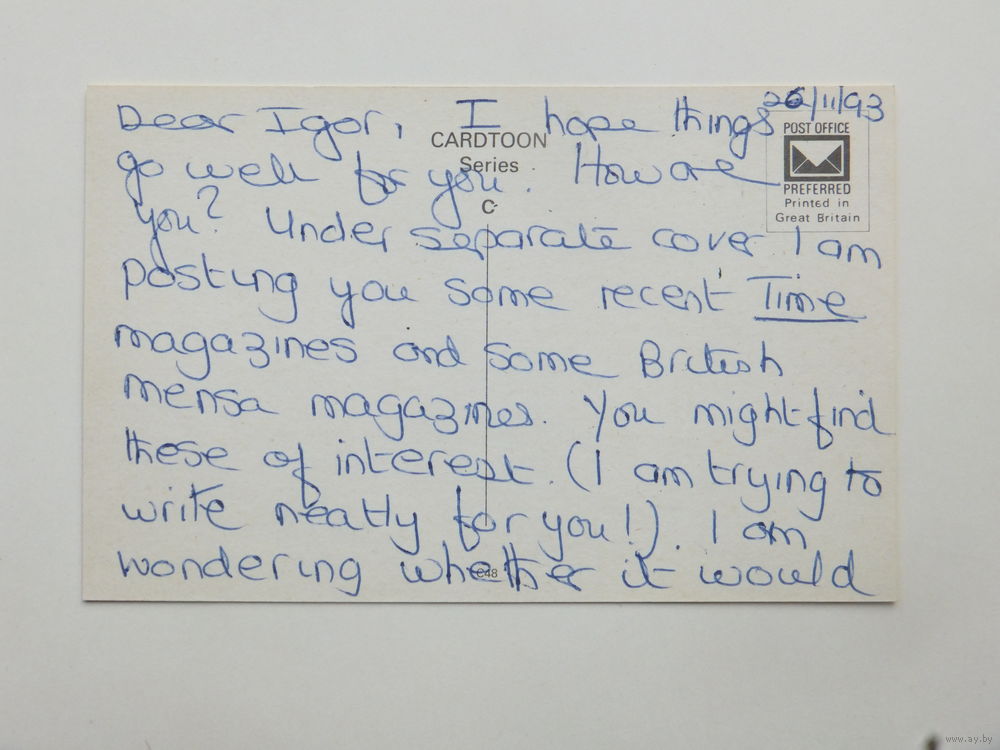 26/11/93
Dear Igor, I hope things
CARDTOON
Series
C
POST OFFICE
PREFERRED
Printed in
Great Britain
go well for you. How are
you? Under separate cover I am
posting you some recent Time
magazines and some British
mensa magazines. You might find
these of interest. (I am trying to
write neatly for you!). I am
wondering whether it would
C48
www.ay.by